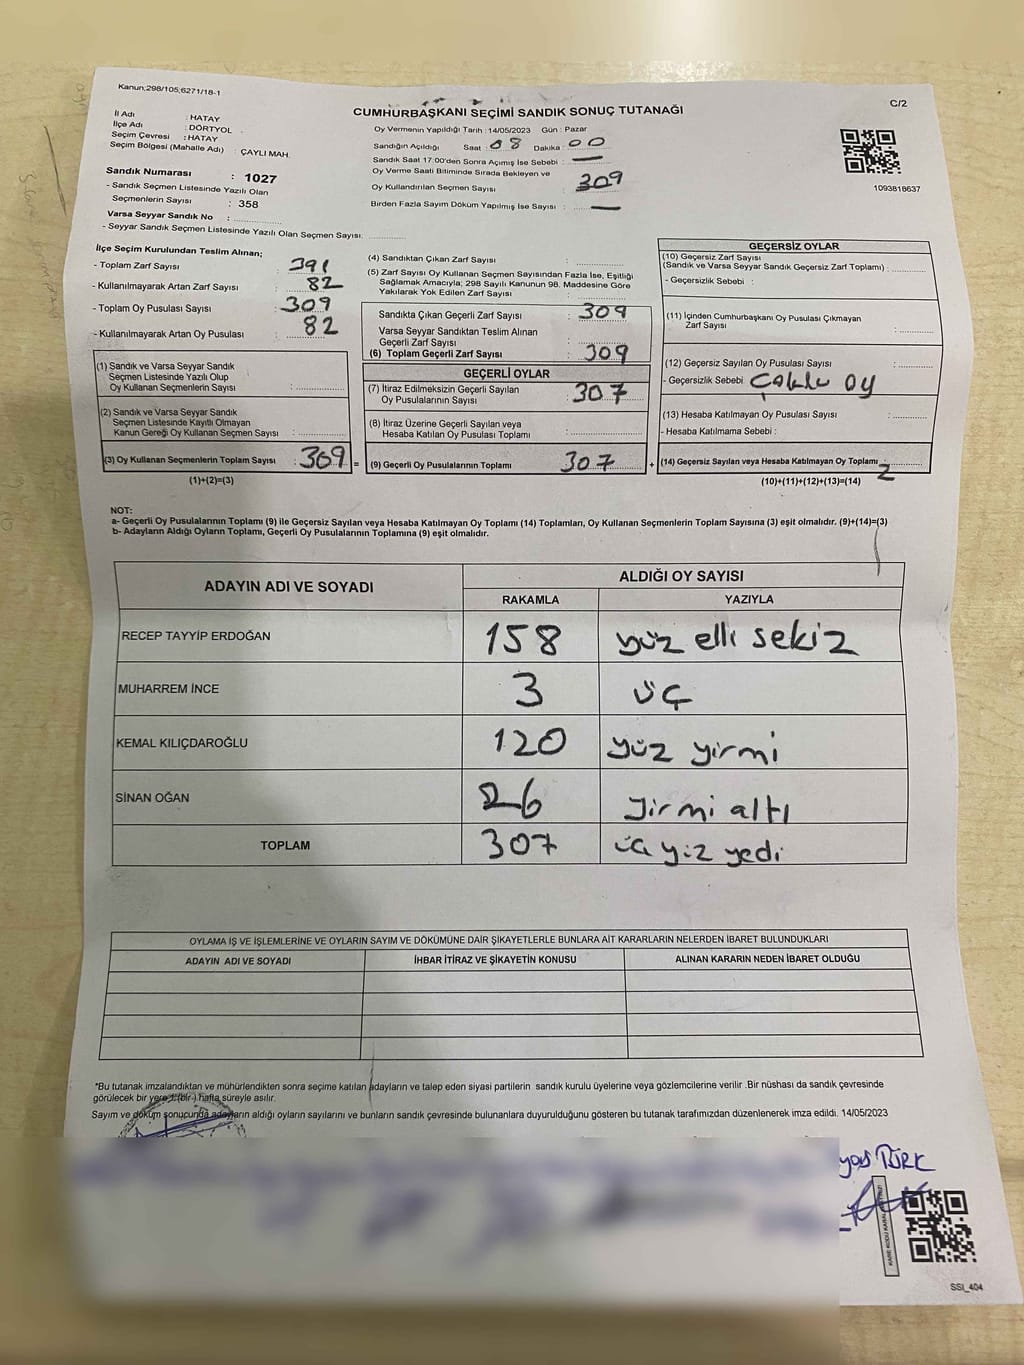 Kanun;298/105;6271/18-1
C/2
CUMHURBAŞKANI SEÇİMİ SANDIK SONUÇ TUTANAĞI
İl Adı : HATAY
İlçe Adı : DÖRTYOL
Seçim Çevresi : HATAY
Seçim Bölgesi (Mahalle Adı) : ÇAYLI MAH.
Sandık Numarası : 1027
- Sandık Seçmen Listesinde Yazılı Olan
Seçmenlerin Sayısı : 358
Varsa Seyyar Sandık No :
- Seyyar Sandık Seçmen Listesinde Yazılı Olan Seçmen Sayısı:
Oy Vermenin Yapıldığı Tarih :14/05/2023 Gün : Pazar
Sandığın Açıldığı Saat : 08 Dakika : 00
Sandık Saat 17:00'den Sonra Açımış İse Sebebi : —
Oy Verme Saati Bitiminde Sırada Bekleyen ve
Oy Kullandırılan Seçmen Sayısı : 309
Birden Fazla Sayım Döküm Yapılmış İse Sayısı : —
1093818637
İlçe Seçim Kurulundan Teslim Alınan;
- Toplam Zarf Sayısı : 391
- Kullanılmayarak Artan Zarf Sayısı : 82
- Toplam Oy Pusulası Sayısı : 309
- Kullanılmayarak Artan Oy Pusulası : 82
(1) Sandık ve Varsa Seyyar Sandık
Seçmen Listesinde Yazılı Olup
Oy Kullanan Seçmenlerin Sayısı :
(2) Sandık ve Varsa Seyyar Sandık
Seçmen Listesinde Kayıtlı Olmayan
Kanun Gereği Oy Kullanan Seçmen Sayısı :
(3) Oy Kullanan Seçmenlerin Toplam Sayısı : 309 =
(1)+(2)=(3)
(4) Sandıktan Çıkan Zarf Sayısı :
(5) Zarf Sayısı Oy Kullanan Seçmen Sayısından Fazla İse, Eşitliği
Sağlamak Amacıyla; 298 Sayılı Kanunun 98. Maddesine Göre
Yakılarak Yok Edilen Zarf Sayısı :
Sandıkta Çıkan Geçerli Zarf Sayısı : 309
Varsa Seyyar Sandıktan Teslim Alınan
Geçerli Zarf Sayısı :
(6) Toplam Geçerli Zarf Sayısı : 309
GEÇERLİ OYLAR
(7) İtiraz Edilmeksizin Geçerli Sayılan
Oy Pusulalarının Sayısı : 307
(8) İtiraz Üzerine Geçerli Sayılan veya
Hesaba Katılan Oy Pusulası Toplamı :
(9) Geçerli Oy Pusulalarının Toplamı : 307 +
GEÇERSİZ OYLAR
(10) Geçersiz Zarf Sayısı
(Sandık ve Varsa Seyyar Sandık Geçersiz Zarf Toplamı) :
- Geçersizlik Sebebi :
(11) İçinden Cumhurbaşkanı Oy Pusulası Çıkmayan
Zarf Sayısı :
(12) Geçersiz Sayılan Oy Pusulası Sayısı :
- Geçersizlik Sebebi Çoklu oy
(13) Hesaba Katılmayan Oy Pusulası Sayısı :
- Hesaba Katılmama Sebebi :
(14) Geçersiz Sayılan veya Hesaba Katılmayan Oy Toplamı : 2
(10)+(11)+(12)+(13)=(14)
NOT:
a- Geçerli Oy Pusulalarının Toplamı (9) ile Geçersiz Sayılan veya Hesaba Katılmayan Oy Toplamı (14) Toplamları, Oy Kullanan Seçmenlerin Toplam Sayısına (3) eşit olmalıdır. (9)+(14)=(3)
b- Adayların Aldığı Oyların Toplamı, Geçerli Oy Pusulalarının Toplamına (9) eşit olmalıdır.
ADAYIN ADI VE SOYADI
ALDIĞI OY SAYISI
RAKAMLA YAZIYLA
RECEP TAYYİP ERDOĞAN 158 yüz elli sekiz
MUHARREM İNCE 3 üç
KEMAL KILIÇDAROĞLU 120 yüz yirmi
SİNAN OĞAN 26 yirmi altı
TOPLAM 307 üç yüz yedi
OYLAMA İŞ VE İŞLEMLERİNE VE OYLARIN SAYIM VE DÖKÜMÜNE DAİR ŞİKAYETLERLE BUNLARA AİT KARARLARIN NELERDEN İBARET BULUNDUKLARI
ADAYIN ADI VE SOYADI İHBAR İTİRAZ VE ŞİKAYETİN KONUSU ALINAN KARARIN NEDEN İBARET OLDUĞU
*Bu tutanak imzalandıktan ve mühürlendikten sonra seçime katılan adayların ve talep eden siyasi partilerin sandık kurulu üyelerine veya gözlemcilerine verilir .Bir nüshası da sandık çevresinde
görülecek bir yere 1 (bir-) hafta süreyle asılır.
Sayım ve döküm sonucunda adayların aldığı oyların sayılarını ve bunların sandık çevresinde bulunanlara duyurulduğunu gösteren bu tutanak tarafımızdan düzenlenerek imza edildi. 14/05/2023
TÜRK
SSI_404